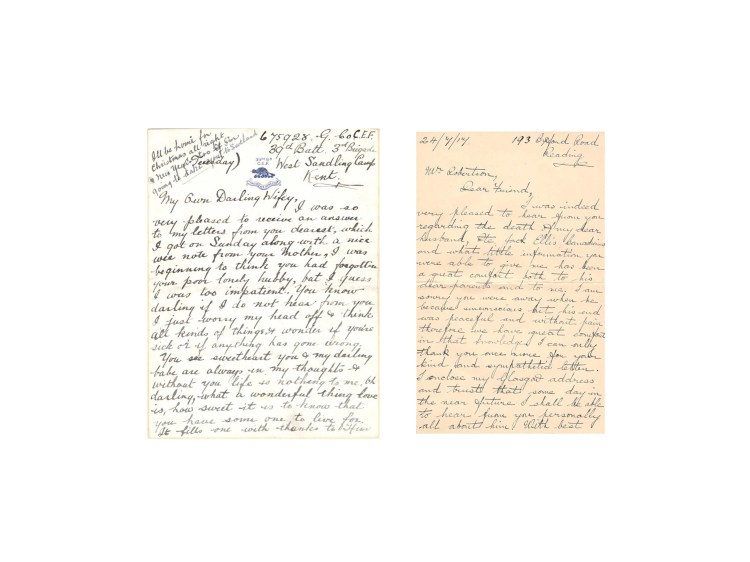 I'll be home for
Christmas all right
& New Year
going to
(Tuesday)
675928. G. Co C.E.F.
39th Batt. 3rd Brigade
West Sandling Camp
Kent.
My Own Darling Wifey,
I was so
very pleased to receive an answer
to my letters from you dearest, which
I got on Sunday along with a nice
wee note from your Mother, I was
beginning to think you had forgotten
your poor lonely hubby, but I guess
I was too impatient. You know
darling if I do not hear from you
I just worry my heart off & think
all kinds of things, & wonder if you're
sick or if anything has gone wrong.
You see sweetheart you & my darling
babe are always in my thoughts &
without you life is nothing to me. Oh
darling, what a wonderful thing love
is, how sweet it is to know that
you have some one to live for.
It fills one with thanks to Him
24/7/17 193 Oxford Road
Reading
Mr Robertson,
Dear Friend,
I was indeed
very pleased to hear from you
regarding the death of my dear
husband, Pte Jack Ellis Canadians
and what little information you
were able to give me has been
a great comfort both to his
dear parents and to me, I am
sorry you were away when he
became unconscious but his end
was peaceful and without pain
therefore we have great comfort
in that knowledge. I can only
thank you once more for your
kind and sympathetic letter.
I enclose my Glasgow address
and trust that some day in
the near future I shall be able
to hear from you personally
all about him. With best